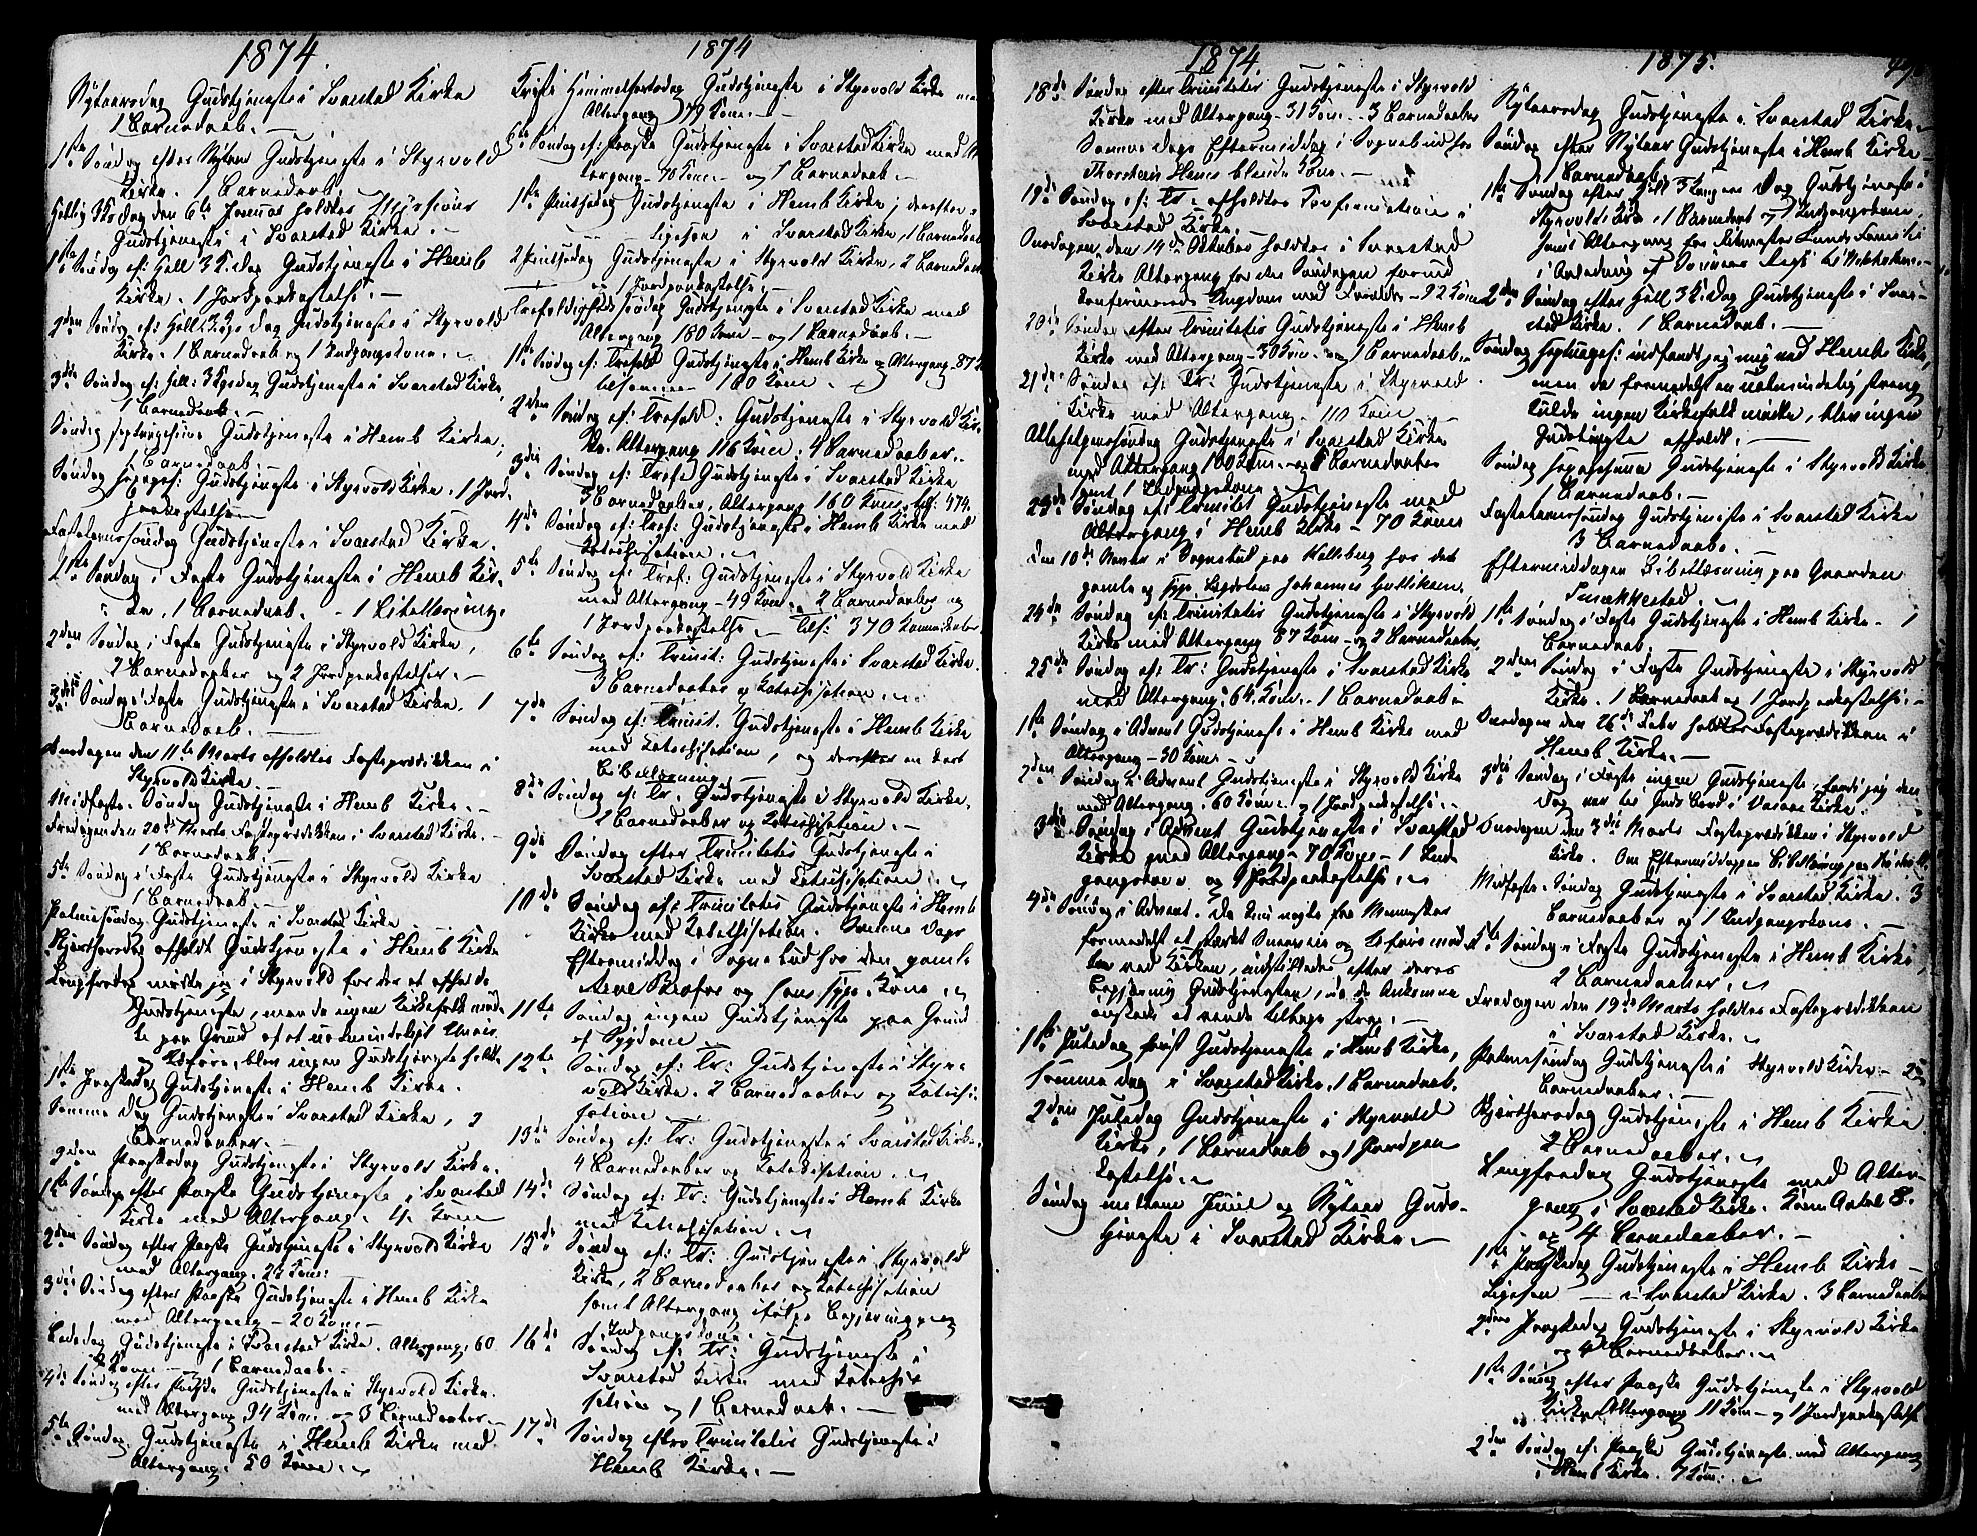 1874.
Nytaarsdag Gudstjeneste i Svarstad Kirke
1 Barnedaab. —
1ste Søndag efter Nytaar Gudstjeneste i Styrvold
Kirke. 1 Barnedaab.
Hellig 3 Kongers Dag den 6te Januar holdtes Missions
Gudstjeneste i Svarstad Kirke. —
1ste Søndag ef: Hell 3 K. Dag Gudstjeneste i Hemb
Kirke. 1 Jordpaakastelse. —
2den Søndag ef: Hell. 3 Kgs Dag Gudstjeneste i Styrvold
Kirke. 1 Barnedaab og 1 Indgangskone.
3die Søndag ef: Hell: 3 Kgsdag Gudstjeneste i Svarstad Kirke,
1 Barnedaab. —
Søndag septuagesima Gudstjeneste i Hemb Kirke,
1 Barnedaab —
Søndag Sexages: Gudstjeneste i Styrvold Kirke. 1 Jord-
paakastelse —
Fastelavnssøndag Gudstjeneste i Svarstad Kirke.
1ste Søndag i Faste Gudstjeneste i Hemb Kir-
ke, 1 Barnedaab. - 1 Bibellæsning.
2den Søndag i Faste Gudstjeneste i Styrvold Kirke,
2 Barnedaaber og 2 Jordpaakastelser. —
3die Søndag i Faste Gudstjeneste i Svarstad Kirke. 1
Barnedaab. —
Onsdagen den 11te Marts afholdtes Fasteprædikken i
Styrvold Kirke. —
Midfaste-Søndag Gudstjeneste i Hemb Kirke. —
Fredagen den 20de Marts Fasteprædikken i Svarstad Kirke. —
1 Barnedaab. —
5te Søndag i Faste Gudstjeneste i Styrvold Kirke
1 Barnedaab. —
Palmesøndag Gudstjeneste i Svarstad Kirke
Skjærthorsdag afholdt Gudstjeneste i Hemb Kirke
Langfredag mødte jeg i Styrvold for der at afholde
Gudstjeneste, men da ingen Kirkefolk mød-
te paa Grund af et ualmindeligt Uveir
og Uføre, blev ingen Gudstjeneste holdt.
1ste Paaskedag Gudstjeneste i Hemb Kirke.
Samme Dag Gudstjeneste i Svarstad Kirke, 2
Barnedaaber. —
2den Paaskedag Gudstjeneste i Styrvold Kirke.
1ste Søndag efter Paaske Gudstjeneste i Svarstad
Kirke med Altergang. 4 Kom
2den Søndag efter Paaske Gudstjeneste i Styrvold Kirke
med Altergang. 27 Kom:
3die Søndag efter Paaske Gudstjeneste i Hemb Kirke
med Altergang - 20 Kom. —
Bededag Gudstjeneste i Svarstad Kirke. Altergang: 60
1 Barnedaab. —
4de Søndag efter Paaske Gudstjeneste i Styrvold Kirke.
med Altergang 34 Kom. og 3 Barnedaaber. —
5te Søndag Gudstjeneste i Hemb Kirke med
Altergang. 50 Kom. —
1874
Kristi Himmelfartsdag Gudstjeneste i Styrvold Kirke med
Altergang 79 Kom. —
6te Søndag ef: Paaske Gudstjeneste i Svarstad Kirke med Al-
tergang 70 Kom. og 1 Barnedaab. —
1ste Pintsedag Gudstjeneste i Hemb Kirke; derefter
ligesaa i Svarstad Kirke, 1 Barnedaab
2 Pintsedag Gudstjeneste i Styrvold Kirke, 2 Barnedaab
og 1 Jordpaakastelse. —
Trefoldigheds søndag Gudstjeneste i Svarstad Kirke med
Altergang 180 Kom - og 1 Barnedaab. —
1ste Søndag ef: Trefold Gudstjeneste i Hemb Kirke - Altergang - 87
2den Søndag ef: Trefold: Gudstjeneste i Styrvold Kir-
ke. Altergang 116 Kom: 4 Barnedaaber. —
3die Søndag ef: Tref: Gudstjeneste i Svarstad Kirke
3 Barnedaaber, Altergang 160 Kom.
4de Søndag ef: Tref: Gudstjeneste i Hemb Kirke med
Katechisation. —
5te Søndag ef: Tref: Gudstjeneste i Styrvold Kirke
med Altergang - 49 Kom. 2 Barnedaaber og
1 Jordpaakastelse —
6te Søndag ef: Trinit: Gudstjeneste i Svarstad Kirke.
3 Barnedaaber og Katechisation. —
7de Søndag ef: Trinit. Gudstjeneste i Hemb Kirke
med Katechisation, og derefter en kort
Bibellæsning —
8de Søndag ef: Tr. Gudstjeneste i Styrvold Kirke,
1 Barnedaaber og Katechisation. —
9de Søndag efter Trinitatis Gudstjeneste i
Svarstad Kirke med Katechisation. —
10de Søndag ef: Trinitatis Gudstjeneste i Hemb
Kirke med Katechisation. Samme Dags
Eftermiddag i Sognebud hos den gamle
og hans syge Kone. —
11te Søndag ingen Gudstjeneste paa Grund
af Sygdom —
12te Søndag ef: Tr: Gudstjeneste i Styr-
vold Kirke. 2 Barnedaaber og Katechi-
sation —
13de Søndag ef: Tr: Gudstjeneste i Svarstad Kirke.
4 Barnedaaber og Katechisation —
14de Søndag ef: Tr: Gudstjeneste i Hemb Kirke
med Katechisation. —
15de Søndag ef: Tr: Gudstjeneste i Styrvold
Kirke, 2 Barnedaaber og Katechisation
samt Altergang ifølge Begjæring
16de Søndag ef: Tr: Gudstjeneste i
Svarstad Kirke med Katechi-
sation og 1 Barnedaab. —
17de Søndag efter Trinitatis Gudstjeneste i
Hemb Kirke. —
1874
18de Søndag efter Trinitatis Gudstjeneste i Styrvold
Kirke med Altergang - 31 Kom. - 3 Barnedaaber
Samme Dags Eftermiddag i Sognebud hos
Thorstein Hems blinde Kone. —
19de Søndag ef: Tr: afholdtes Confirmation i
Svarstad Kirke. —
Onsdagen den 14de Oktober holdtes i Svarstad
Kirke Altergang for den Søndagen forud
konfirmerede Ungdom med Forældre - 92 Kom
20de Søndag efter Trinitatis Gudstjeneste i Hemb
Kirke med Altergang - 30 Kom. og 1 Barnedaab. —
21de Søndag ef: Tr: Gudstjeneste i Styrvold
Kirke med Altergang - 110 Kom —
Allehelgenssøndag Gudstjeneste i Svarstad Kirke
med Altergang 100 Kom. og 8 Barnedaaber
samt 1 Indgangskone. —
23de Søndag ef: Trinitat. Gudstjeneste med
Altergang i Hemb Kirke - 70 Komm
Den 10de Novbr i Sognebud paa Kalleberg hos det
gamle og syge Johannes
24de Søndag ef: Trinitatis Gudstjeneste i Styrvold
Kirke med Altergang 87 Kom - og 2 Barnedaaber
25de Søndag ef: Tr: Gudstjeneste i Svarstad Kirke
med Altergang: 64 Kom. - 1 Barnedaab —
1ste Søndag i Advent Gudstjeneste i Hemb Kirke med
Altergang - 30 Kom. —
2den Søndag i Advent Gudstjeneste i Styrvold Kirke
med Altergang. 60 Kom. og 1 Jordpaakastelse. —
3die Søndag i Advent Gudstjeneste i Svarstad
Kirke med Altergang - 70 Kom - 1 Ind-
gangskone og 1 Jordpaakastelse. —
4de Søndag i Advent. Da kun nogle faa Mennesker
formedelst et stærkt Sneveir og Uføre mød-
te ved Kirken, indstilledes efter deres
Begjæring Gudstjenesten, da de Ankomne
ønskede at vende tilbage strax. —
1ste Juledag først Gudstjeneste i Hemb Kirke,
samme Dag i Svarstad Kirke. 1 Barnedaab.
2den Juledag Gudstjeneste i Styrvold
Kirke, 1 Barnedaab og 1 Jordpaa-
kastelse. —
Søndag mellem Juul og Nytaar Guds-
tjeneste i Svarstad Kirke. —
1875.
Nytaarsdag Gudstjeneste i Svarstad Kirke —
Søndag efter Nytaar Gudstjeneste i Hemb Kirke —
1 Barnedaab. —
1ste Søndag efter Hell 3 Kongers Dag Gudstjeneste i
Styrvold Kirke, 1 Barnedaab og 1 Indgangskone.
samt Altergang for Ritmester Lunds Familie
i Anledning af Sønnens
2den Søndag efter Hell 3 K. Dag Gudstjeneste i Svar-
stad Kirke. 1 Barnedaab. —
Søndag Septuages: indfandt jeg mig ved Hemb Kirke,
men da formedelst en ualmindelig streng
Kulde ingen Kirkefolk mødte, blev ingen
Gudstjeneste afholdt. —
Søndag Sexagesima Gudstjeneste i Styrvold Kirke
1 Barnedaab. —
Fastelavnssøndag Gudstjeneste i Svarstad Kirke
3 Barnedaab. —
Eftermiddagen Bibellæsning paa Gaarden
Smækkestad. —
1ste Søndag i Faste Gudstjeneste i Hemb Kirke - 1
Barnedaab. —
2den Søndag i Faste Gudstjeneste i Styrvold
Kirke. 1 Barnedaab og 1 Jordpaakastelse. —
Onsdagen den 26de Febr holdtes Fasteprædikken i
Hemb Kirke. —
3die Søndag i Faste ingen Gudstjeneste, fordi jeg den
Dag var til Guds Bord i Vasaas Kirke.
Onsdagen den 3die Marts Fasteprædikken i Styrvold
Kirke. Om Eftermiddagen Bibellæsning paa
Midfaste-Søndag Gudstjeneste i Svarstad Kirke. 3
Barnedaaber og 1 Indgangskone. —
5te Søndag i Faste Gudstjeneste i Hemb Kirke,
2 Barnedaaber. —
Fredagen den 19de Marts holdtes Fasteprædikken
i Svarstad Kirke. —
Palmesøndag Gudstjeneste i Styrvold Kirke - 2
Barnedaaber. —
Skjærthorsdag Gudstjeneste i Hemb Kirke
2 Barnedaaber. —
Langfredag Gudstjeneste med Alter-
gang i Svarstad Kirke. Kom: Antal 8.
og 4 Barnedaaber. —
1ste Paaskedag Gudstjeneste i Hemb Kirke —
Ligesaa — i Svarstad Kirke. 3 Barnedaaber
2den Paaskedag Gudstjeneste i Styrvold Kirke
og 4 Barnedaaber. —
1ste Søndag efter Paaske Gudstjeneste i Styrvold
Kirke, Altergang 11 Kom - og 1 Jordpaakastelse
2den Søndag ef: Paaske Gudstjeneste med Altergang
i Hemb Kirke. 7 Kom: —